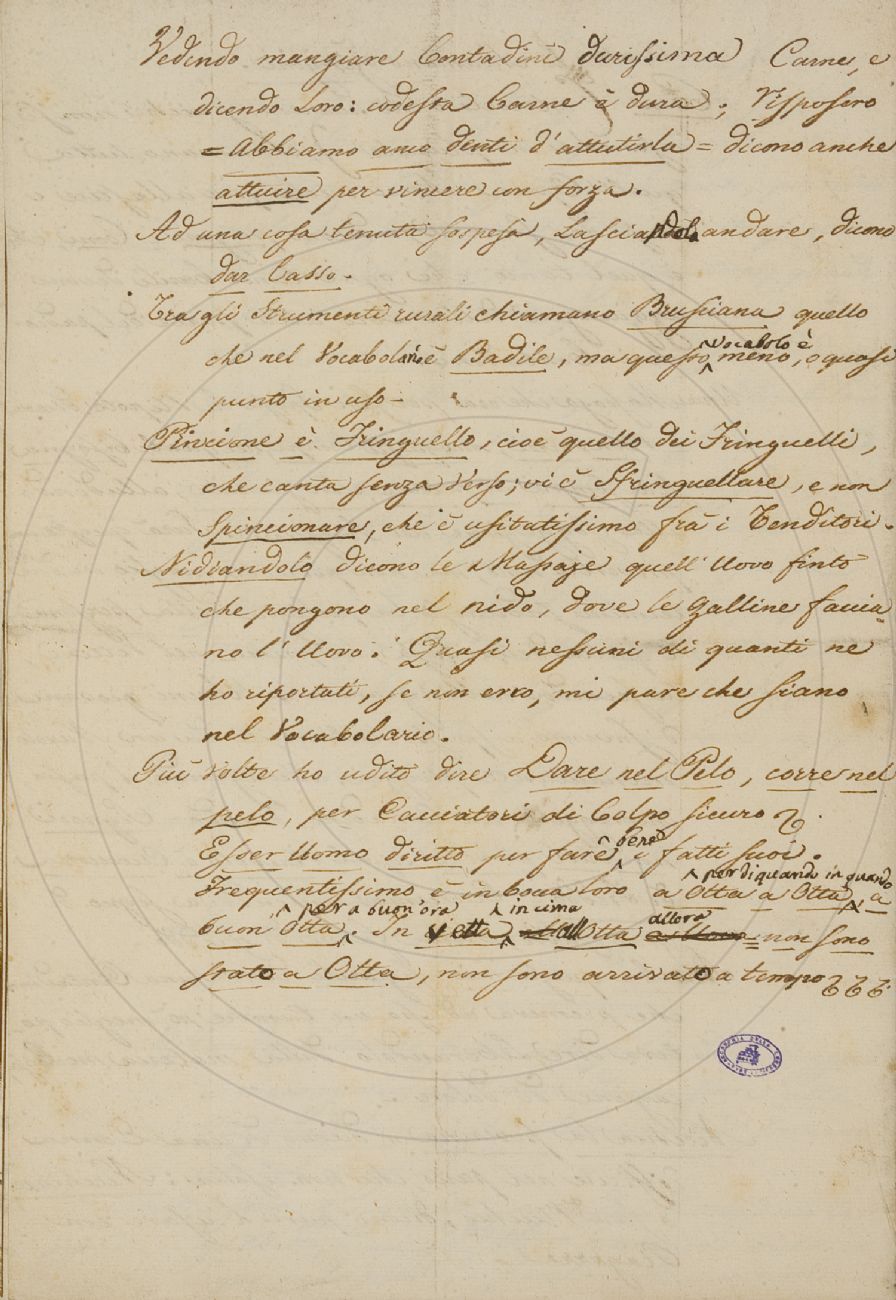 Vedendo mangiare Contadini durissima Carne, e
dicendo Loro: codesta Carne è dura; risposero
= Abbiamo anco denti d'attutirla = dicono anche
attuire per vincere con forza.
Ad una cosa tenuta sospesa, Lasciandola andare, dicono
dar Casso.
Tra gli Strumenti rurali chiamano Brusciana quello
che nel Vocabolario è Badile, ma questo vocabolo è meno, o quasi
punto in uso -
Pincione è Fringuello, cioè quello dei Fringuelli,
che canta senza Verso; vi è Sfringuellare, e non
Spincionare, che è usitatissimo frà i Tenditori.
Nidiandolo dicono le Massaje quell'Uovo finto
che pongono nel nido, dove le galline faccia=
no l'Uovo. Quasi nessuni di quanti ne
ho riportati, se non erro, mi pare che siano
nel Vocabolario.
Più volte ho udito dire Dare nel Pelo, corre nel
pelo, per Cacciatori di Colpo sicuro
Esser Uomo diritto per fare bene i fatti suoi.
Frequentissimo è in bocca loro a Otta a Otta, per di quando in quando, a
buon' Otta per a buon'ora. In vetta, in cima all'Otta allora = non sono
stato a Otta, non sono arrivato a tempo